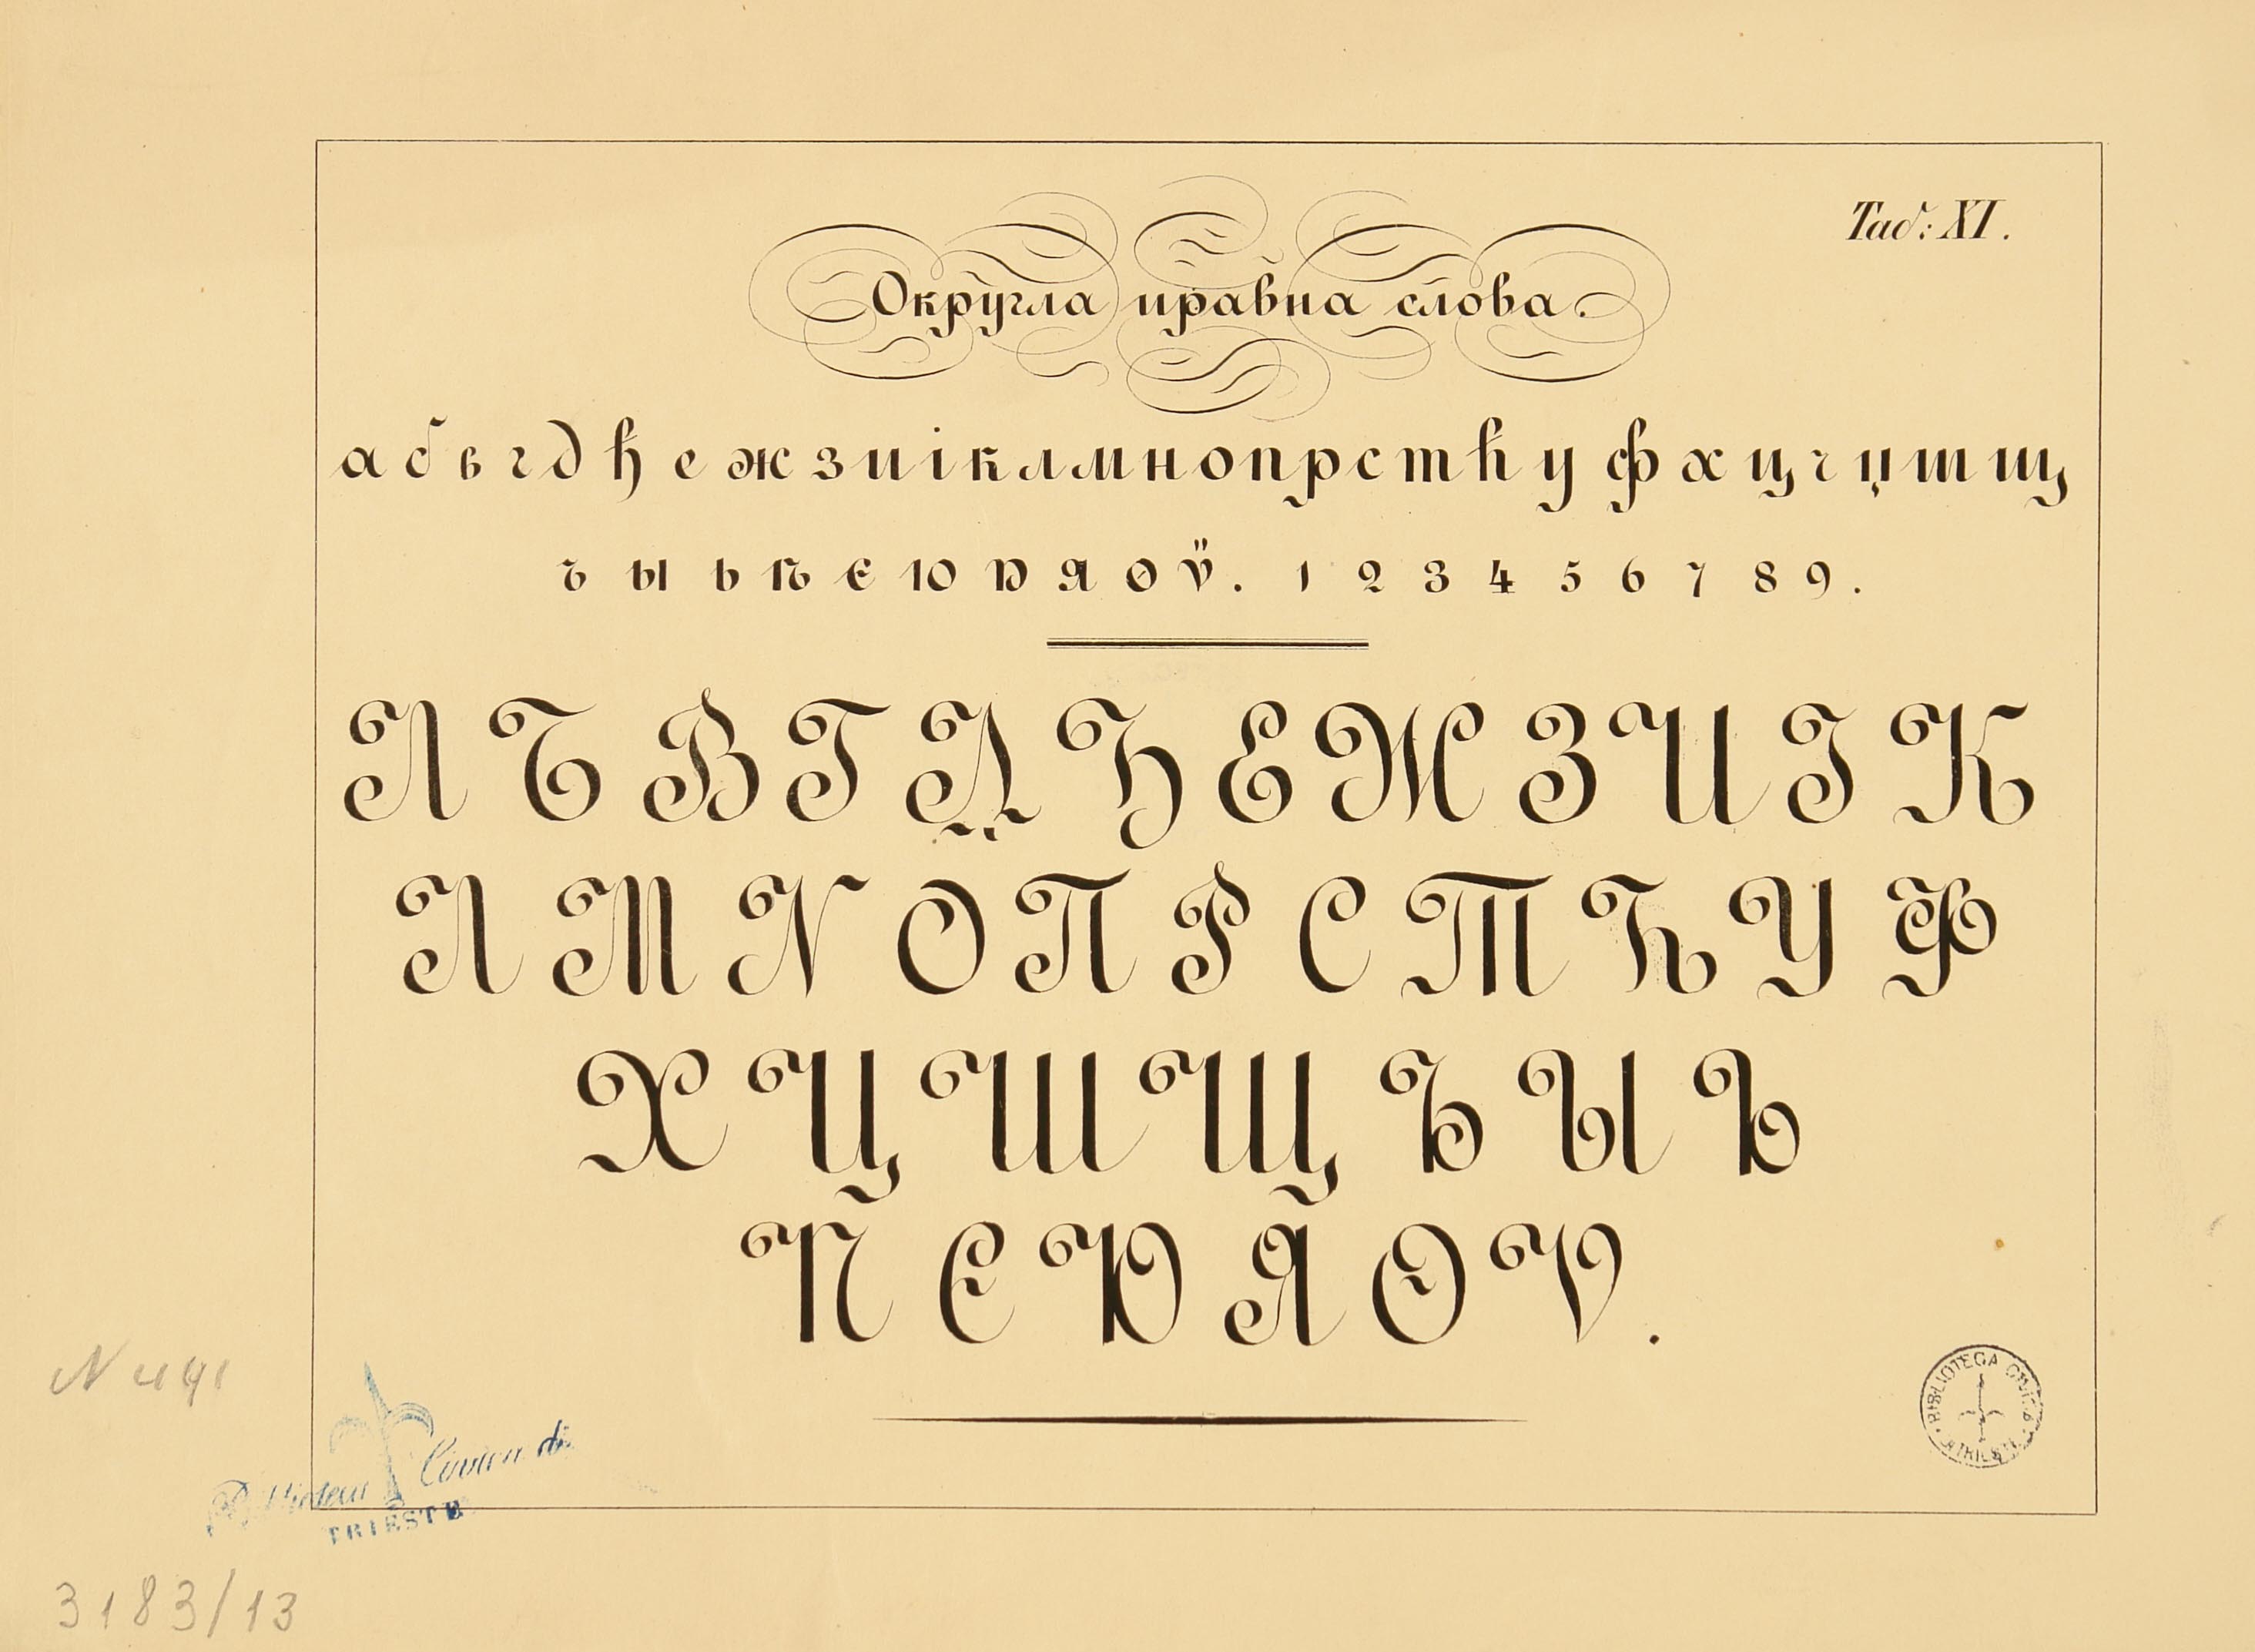 Таб: XI.
Округла правна слова.
а б в г д ђ е ж з и і к л м н о п р с т ћ у ф х ц ч џ ш щ
ъ ы ь ѣ є ю я ѳ ѵ̈. 1 2 3 4 5 6 7 8 9.
А Б В Г Д Ђ Е Ж З И І К
Л М N О П Р С Т Ћ У Ф
Х Ц Ш Щ Ъ Ы Ь
Ѣ Є Ю Я Ѳ Ѵ.
BIBLIOTECA CIVICA TRIESTE
Biblioteca Civica di
TRIESTE
3183/13